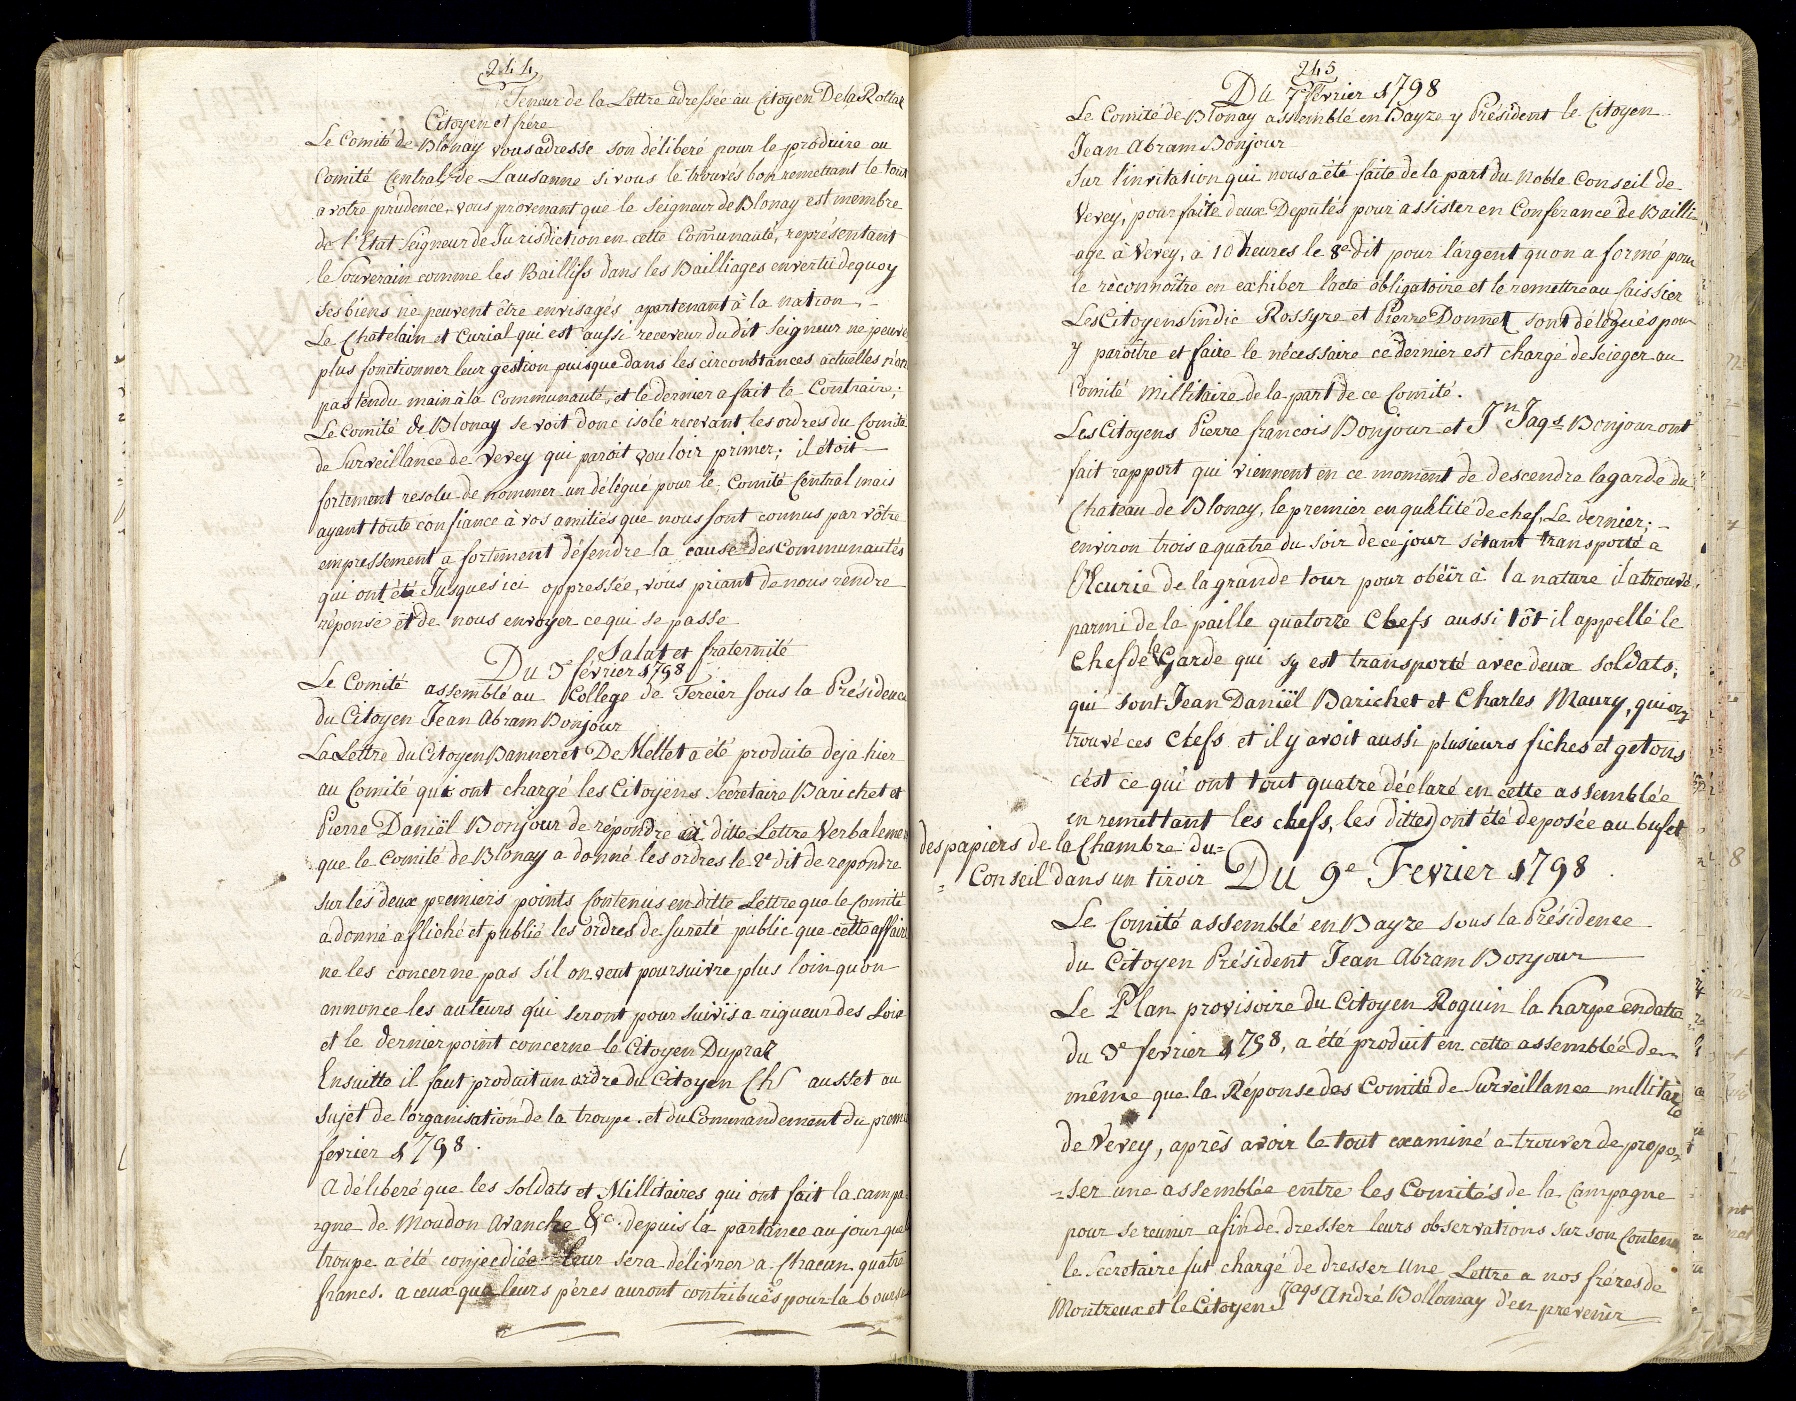 244
Teneur de la Lettre adressée au Citoyen De la Rottaz
Citoyen et frére
Le Comité de Blonay vous adresse son délibéré pour le produire au
Comité Central de Lausanne si vous le trouvés bon remettant le tout
a votre prudence, vous provenant que le Seigneur de Blonay est membre
de l'Etat Seigneur de Jurisdiction en cette Communauté, représentant
le Souverain comme les Baillifs dans les Bailliages en vertu de quoy
ses biens ne peuvent être envisagés apartenant à la nation –
Le Chatelain et Curial qui est aussi receveur du dit Seigneur ne peuve
plus fonctionner leur gestion puisque dans les circonstances actuelles n'on
pas tendu main à la Communauté, et le dernier a fait le Contraire;
Le Comité de Blonay se voit donc isolé recevant les ordres du Comité
de Surveillance de Vevey qui paroit vouloir primer; il étoit
fortement resolu de nommer un délégué pour le Comité Central mais
ayant toute confiance à vos amitiés que nous sont connus par vôtre
empressement a fortement défendre la cause des Communautés
qui ont été Jusques ici oppressée, vous priant de nous rendre
réponse et de nous envoyer ce qui se passe
Salut et fraternité
Du 3e février 1798
Le Comité assemblé au College de Tercier sous la Présidence
du Citoyen Jean Abram Bonjour
La Lettre du Citoyen Banneret De Mellet a été produite deja hier
au Comité qui ont chargé les Citoyens Secretaire Barichet et
Pierre Daniël Bonjour de répondre à ditte Lettre Verbalemen
que le Comité de Blonay a donné les ordres le 2e dit de repondre
sur les deux premiers points Contenus en ditte Lettre que le Comité
a donné affiché et publié les ordres de sureté public que cette affaire
ne les concerne pas s'il on veut poursuivre plus loin qu'on
annonce les auteurs qui seront poursuivis a rigueur des Loix
et le dernier point concerne le Citoyen Dupraz
Ensuitte il faut produit un ordre du Citoyen Chs ausset au
sujet de l'organisation de la troupe et du Commandement du premi
fevrier 1798.
A délibéré que les soldats et Millitaires qui ont fait la campa
=gne de Moudon Avanche &c. depuis la partance au jour que
troupe a été conjecdiée leur sera délivrer a Chacun quatre
francs. a ceux que leurs péres auront contribués pour la bourse
245
Du 7e février 1798
Le Comité de Blonay assemblé en Bayze y Président le Citoyen
Jean Abram Bonjour
Sur l'invitation qui nous a été faite de la part du Noble Conseil de
Vevey, pour faite deux Deputés pour assister en Conferance de Bailli=
age à Vevey, à 10 heures le 8e dit pour l'argent qu'on a formé pour
le réconnoître en exhiber l'acte obligatoire et le remettre au Caissier
Les Citoyens sindic Rossyre et Pierre Donnet sont délegués pour
y paroître et faire le nécessaire ce dernier est chargé de scieger au
Comité Millitaire de la part de ce Comité.
Les Citoyens Pierre francois Bonjour et Jn Jaqs Bonjour ont
fait rapport qui viennent en ce moment de descendre la garde du
Chateau de Blonay, le premier en qualité de chef, Le dernier; –
environ trois a quatre du soir de ce jour s'étant transporté a
l'Ecurie de la grande tour pour obéir à la nature il a trouvé
parmi de la paille quatorze Clefs aussi tôt il appellé le
Chef de le Garde qui sy est transporté avec deux soldats;
qui sont Jean Daniël Barichet et Charles Maury, qui on
trouvé ces Clefs et il y avoit aussi plusieurs fiches et getons
c'est ce qui ont tout quatre déclaré en cette assemblée
en remettant les clefs, les dittes ont été deposée au bufet
des papiers de la Chambre du=
= Conseil dans un tiroir
Du 9e Fevrier 1798
Le Comité assemblé en Bayze sous la Présidence
du Citoyen Président Jean Abram Bonjour
Le Plan provisoire du Citoyen Roguin la harpe en datte
du 3e fevrier 1798, a été produit en cette assemblée de
même que la Réponse des Comité de Surveillance millitaire
de Vevey, après avoir le tout examiné a trouver de propo=
=ser une assemblée entre les Comités de la Campagne
pour se reunir afin de dresser leurs observations sur son Contenu
le Secretaire fut chargé de dresser Une Lettre a nos fréres de
Montreux et le Citoyen Jaqs André Bollomay d'en prévenir